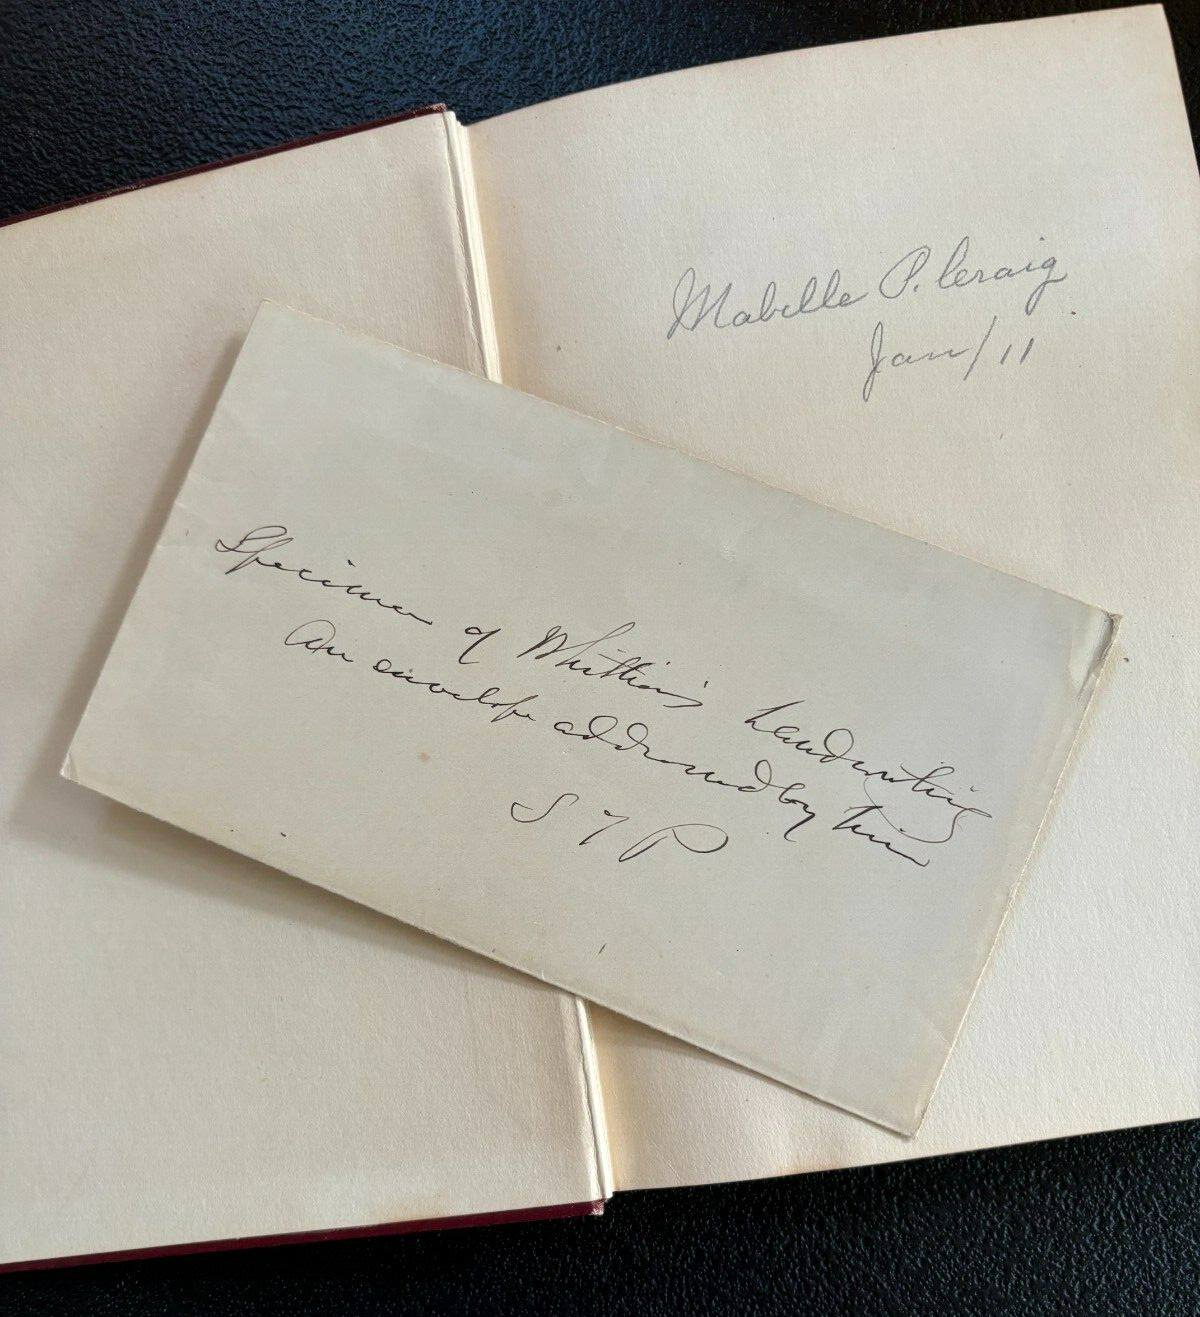 Mabelle P. Craig
Jan/11
Specimen of Whittier's handwriting
An envelope addressed by him
S T P